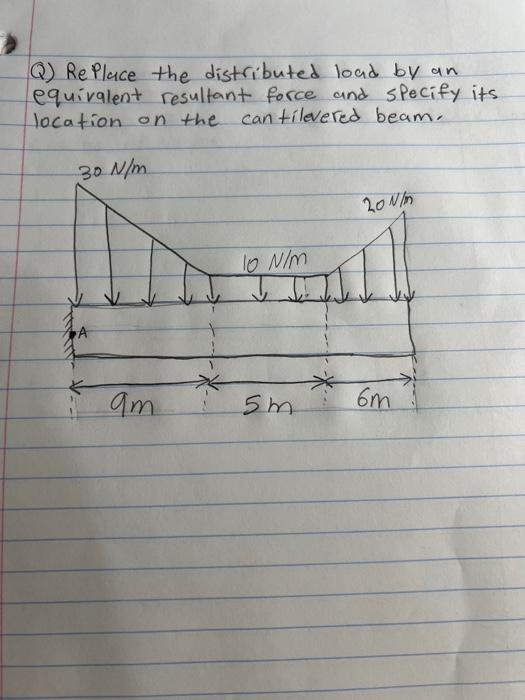 Q) Replace the distributed load by an
equivalent resultant force and specify its
location on the cantilevered beam.
30 N/m
20 N/m
10 N/m
A
9m
5m
6m